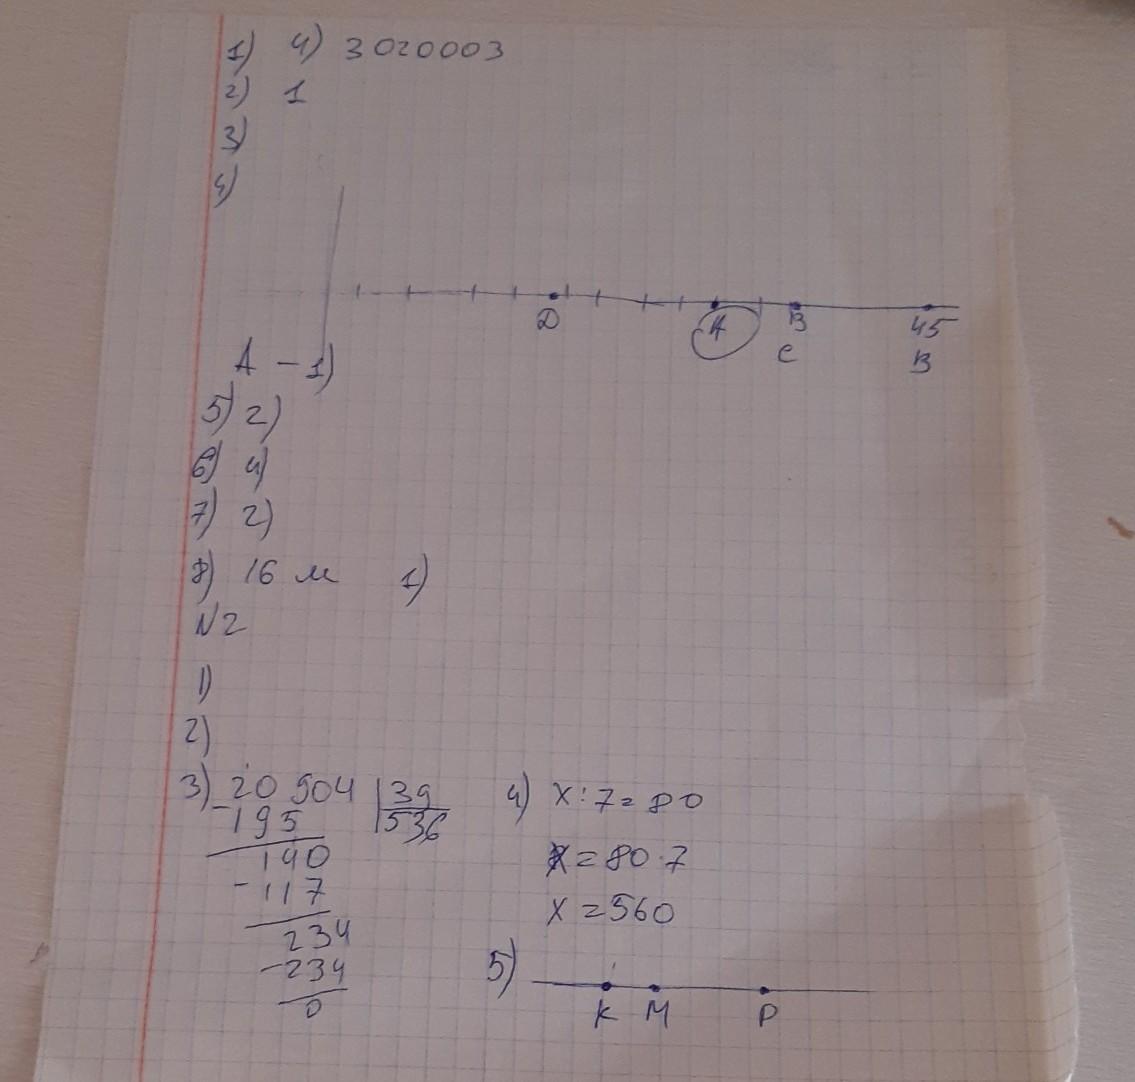 1) 4) 3020003
2) 1
3)
4)
D A B 45
C B
A - 1)
5) 2)
6) 4)
7) 2)
8) 16 м 1)
N2
1)
2)
3) 20 904 | 39
- 195 | 536
140
- 117
234
- 234
0
4) x : 7 = 80
x = 80 · 7
x = 560
5)
K M P